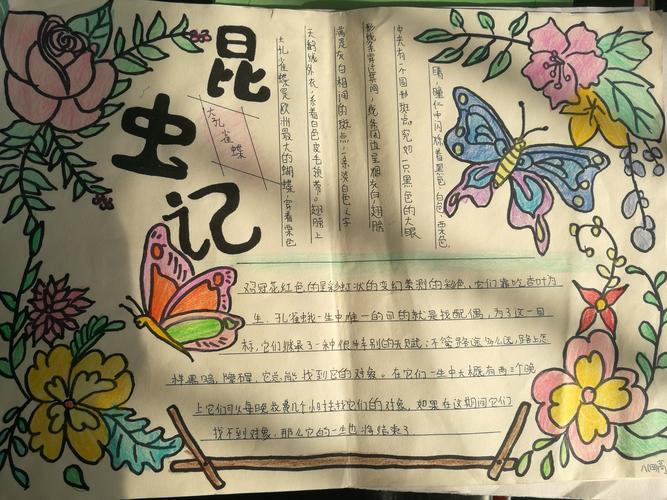 昆
虫
记
大孔
雀
蝶
大孔雀蝶是欧洲最大的蝴蝶,穿着栗色
天鹅绒外衣,系着白色皮毛领带。翅膀上
满是灰白相间的斑点,一条淡白色之字
形线条穿过其间,线条周边呈烟灰白,翅膀
中央有一个圆形斑点,宛如一只黑色的大眼
睛,瞳仁中闪烁着黑色,白色,栗色,
鸡冠花红色的呈彩虹状的变幻莫测的色彩,它们靠吃杏叶为
生,孔雀蛾一生中唯一的目的就是找配偶,为了这一目
标,它们继承了一种很特别的天赋:不管路途多么远,路上怎
样黑暗,障碍,它总能找到它的对象。在它们一生中大概有两三个晚
上它们可以每晚花费几个小时去找它们的对象,如果在这期间它们
找不到对象,那么它的一生也将结束了